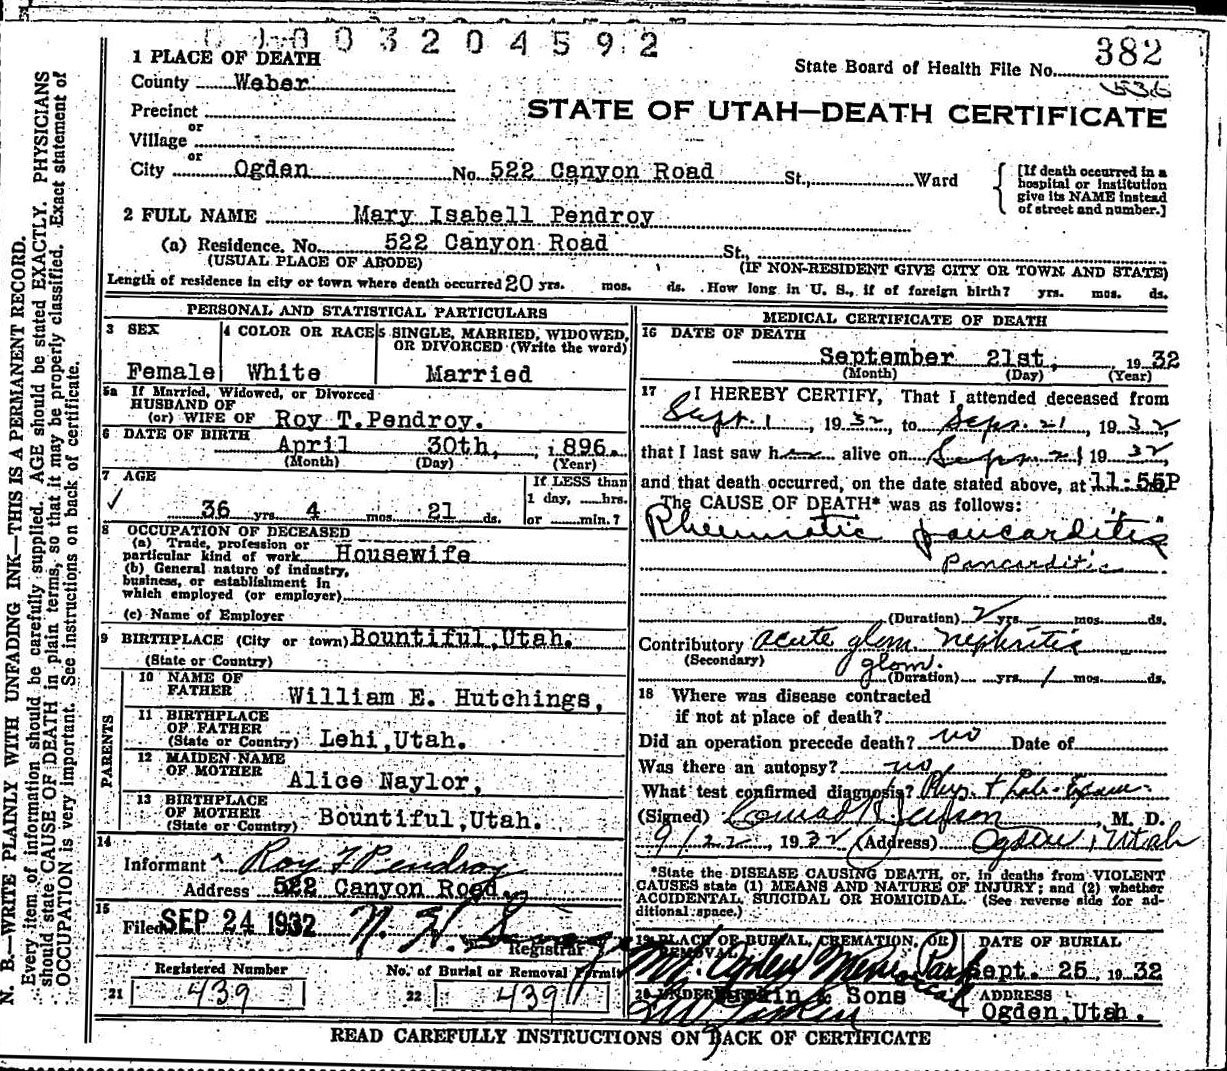 0 1 0 0 3 2 0 4 5 9 2
1 PLACE OF DEATH
State Board of Health File No. 382
536
County Weber
STATE OF UTAH—DEATH CERTIFICATE
Precinct
or
Village
or
City Ogden No. 522 Canyon Road St., Ward
[If death occurred in a
hospital or institution
give its NAME instead
of street and number.]
2 FULL NAME Mary Isabell Pendroy
(a) Residence. No. 522 Canyon Road St.,
(USUAL PLACE OF ABODE) (IF NON-RESIDENT GIVE CITY OR TOWN AND STATE)
Length of residence in city or town where death occurred 20 yrs. mos. ds. How long in U. S., if of foreign birth? yrs. mos. ds.
PERSONAL AND STATISTICAL PARTICULARS
3 SEX
Female
4 COLOR OR RACE
White
5 SINGLE, MARRIED, WIDOWED,
OR DIVORCED (Write the word)
Married
5a If Married, Widowed, or Divorced
HUSBAND OF
(or) WIFE OF Roy T.Pendroy.
6 DATE OF BIRTH April 30th, 1896.
(Month) (Day) (Year)
7 AGE
36 yrs. 4 mos. 21 ds.
If LESS than
1 day, hrs.
or min.?
8 OCCUPATION OF DECEASED
(a) Trade, profession or
particular kind of work Housewife
(b) General nature of industry,
business, or establishment in
which employed (or employer)
(c) Name of Employer
9 BIRTHPLACE (City or town) Bountiful,Utah.
(State or Country)
PARENTS
10 NAME OF
FATHER William E. Hutchings,
11 BIRTHPLACE
OF FATHER
(State or Country) Lehi,Utah.
12 MAIDEN NAME
OF MOTHER Alice Naylor,
13 BIRTHPLACE
OF MOTHER
(State or Country) Bountiful,Utah.
14
Informant Roy T Pendroy
Address 522 Canyon Road,
15
Filed SEP 24 1932 N. H.
Registrar
Registered Number
21 439
No. of Burial or Removal Permit
22 439
MEDICAL CERTIFICATE OF DEATH
16 DATE OF DEATH
September 21st, 1932
(Month) (Day) (Year)
17 I HEREBY CERTIFY, That I attended deceased from
Sept. 1, 1932, to Sept. 21, 1932
that I last saw her alive on Sept 21, 1932,
and that death occurred, on the date stated above, at 11:55P
The CAUSE OF DEATH* was as follows:
Rheumatic pancarditis
Pancarditis
(Duration) 2 yrs. mos. ds.
Contributory acute glom. nephritis
(Secondary) glom.
(Duration) yrs. 1 mos. ds.
18 Where was disease contracted
if not at place of death?
Did an operation precede death? no Date of
Was there an autopsy? no
What test confirmed diagnosis? Phys. + Lab. Exam.
(Signed) Conrad H Jenson, M. D.
9/22, 1932 (Address) Ogden, Utah
*State the DISEASE CAUSING DEATH, or, in deaths from VIOLENT
CAUSES state (1) MEANS AND NATURE OF INJURY; and (2) whether
ACCIDENTAL, SUICIDAL OR HOMICIDAL. (See reverse side for ad-
ditional space.)
19 PLACE OF BURIAL, CREMATION, OR
REMOVAL
Mt. Ogden Mem Park
DATE OF BURIAL
Sept. 25, 1932
20 UNDERTAKER
Larkin & Sons
ADDRESS
Ogden,Utah.
READ CAREFULLY INSTRUCTIONS ON BACK OF CERTIFICATE
N. B.—WRITE PLAINLY WITH UNFADING INK—THIS IS A PERMANENT RECORD.
Every item of information should be carefully supplied. AGE should be stated EXACTLY. PHYSICIANS
should state CAUSE OF DEATH in plain terms, so that it may be properly classified. Exact statement of
OCCUPATION is very important. See instructions on back of certificate.